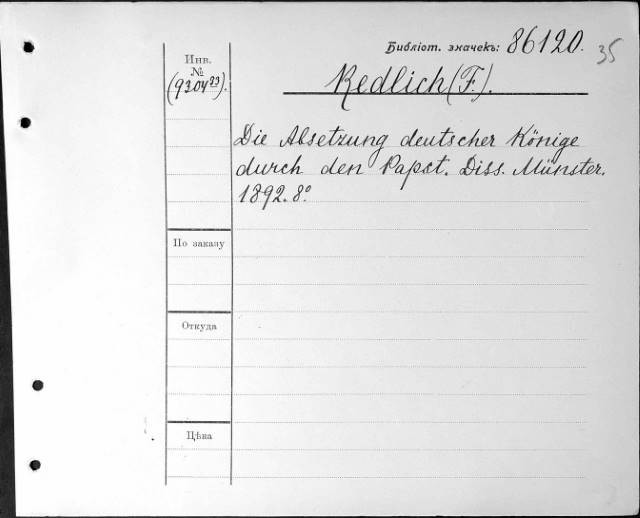 Библіот. значекъ: 86120.
35
Инв.
№
(9304²³).
Redlich (F.).
Die Absetzung deutscher Könige
durch den Papst. Diss. Münster.
1892. 8°.
По заказу
Откуда
Цѣна